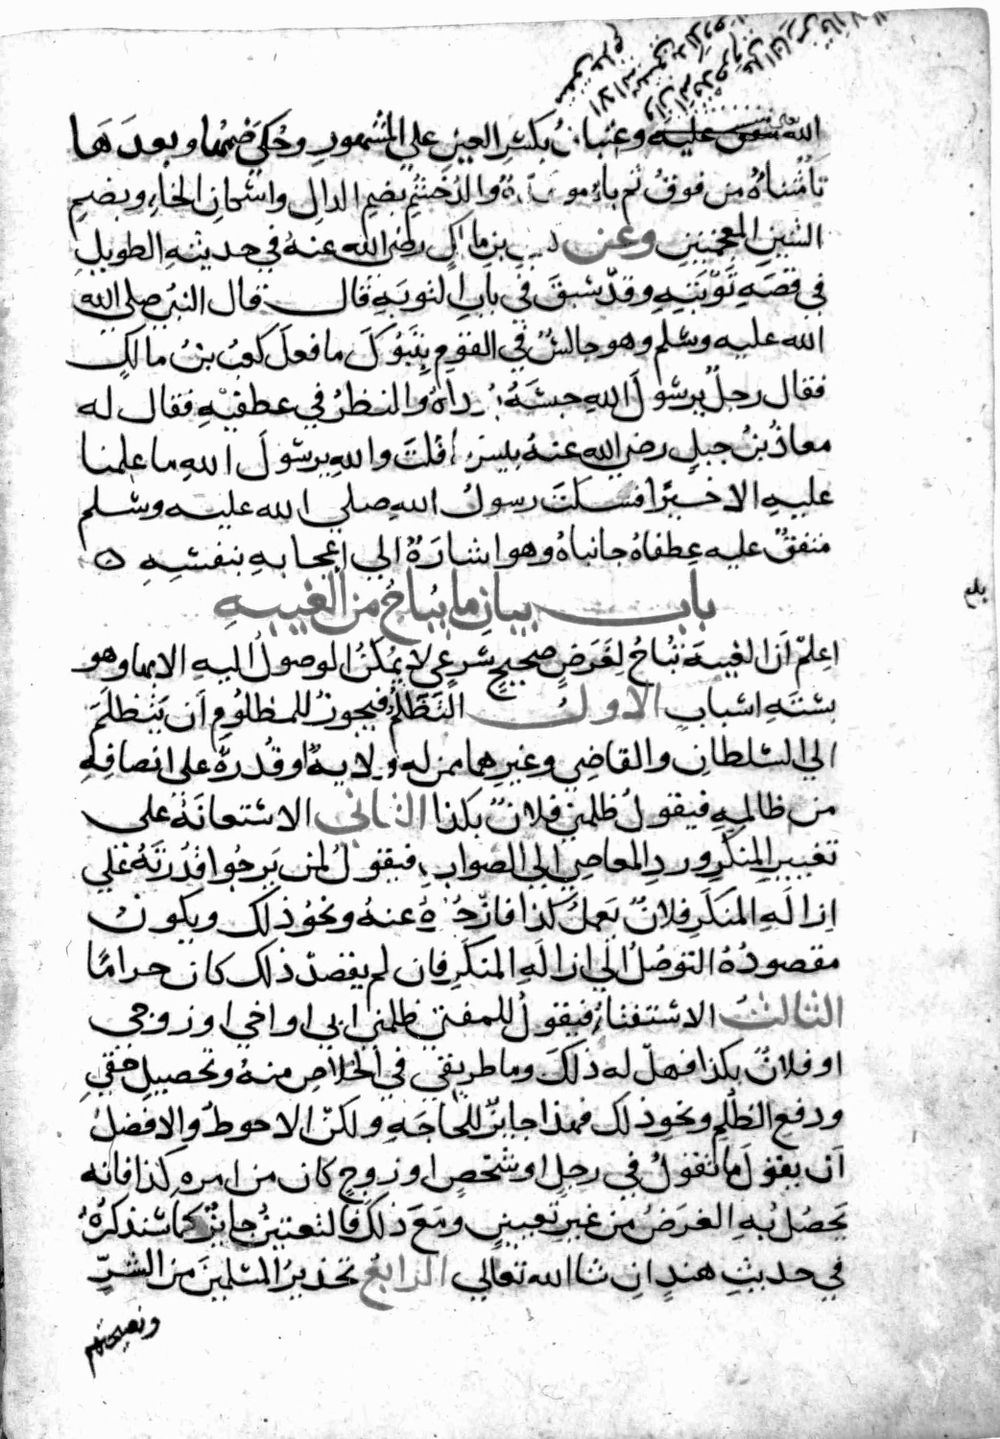 الله متفق عليه وعتبان بكسر العين علي المشهور وحكي ضمها وبعدها
تا مثناة من فوق ثم باء مو والدخشم بضم الدال واسكان الخاء وبضم
الشين المعجمتين وعن بن مالك رضي الله عنه في حديثه الطويل
في قصة توبته وقد سبق في باب التوبة قال قال النبي صلي الله
الله عليه وسلم وهو جالس في القوم بتبوك ما فعل كعب بن مالك
فقال رجل يرسول الله حبسه برداه والنظر في عطفيه فقال له
معاذ بن جبل رضي الله عنه بيس ما قلت والله يرسول الله ما علمنا
عليه الا خيرا فسكت رسول الله صلي الله عليه وسلم
متفق عليه عطفاه جانباه وهو اشارة الي اعجابه بنفسه ه
باب بيان ما يباح من الغيبة
اعلم ان الغيبة تباح لغرض صحيح شرعي لا يمكن الوصول اليه الا بها وهو
بستة اسباب الاول التظلم فيجوز للمظلوم ان يتظلم
الي السلطان والقاضي وغيرهما ممن له ولاية او قدرة علي انصافه
من ظالمه فيقول ظلمني فلان بكذا الثاني الاستعانة علي
تغيير المنكر ورد المعاصي الي الصواب فيقول لمن يرجوا قدرته علي
ازالة المنكر فلان يعمل كذا فازجره عنه ونحو ذلك ويكون
مقصوده التوصل الي ازالة المنكر فان لم يقصد ذلك كان حراما
الثالث الاستفتاء فيقول للمفتي ظلمني ابي او اخي او زوجي
او فلان بكذا فهل له ذلك وما طريقي في الخلاص منه وتحصيل حقي
ودفع الظلم ونحو ذلك فهذا جايز للحاجة ولكن الاحوط والافضل
ان يقول ما تقول في رجل او شخص او زوج كان من امره كذا فانه
يحصل به الغرض من غير تعيين ومع ذلك فالتعيين جايز كما سنذكره
في حديث هند ان شا الله تعالي الرابع تحذير المسلمين من الشر
ونصيحتهم
بلغ